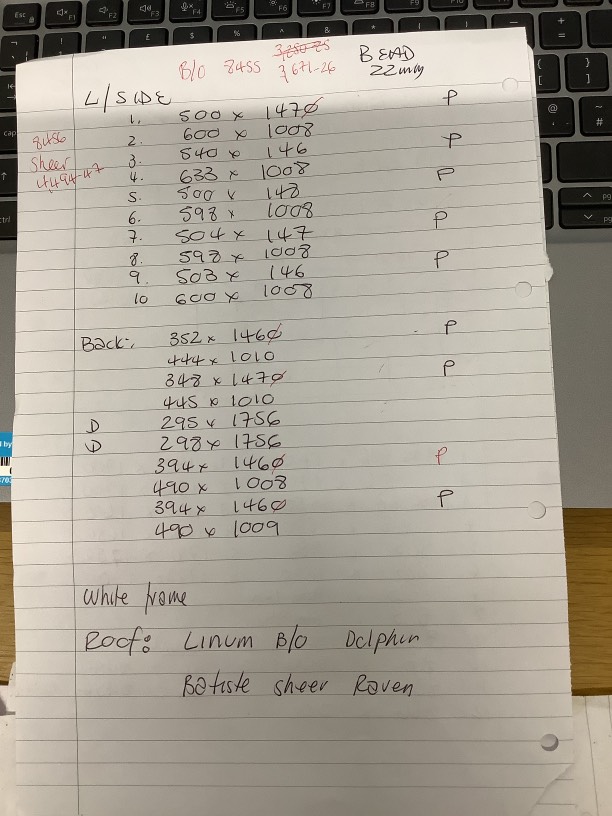 B/O 8455 3,250-25 BEAD
3,671-26 22mm
L/SIDE
1. 500 x 1470 P
2. 600 x 1008
3. 540 x 146 P
4. 633 x 1008
5. 500 x 148 P
6. 598 x 1008
7. 504 x 147 P
8. 598 x 1008
9. 503 x 146 P
10 600 x 1008
8456
Sheer
4494-47
Back:, 352 x 1460 P
444 x 1010
348 x 1470 P
445 x 1010
D 295 x 1756
D 298 x 1756
394 x 1460 P
490 x 1008
394 x 1460 P
490 x 1009
White frame
Roof: Linum B/O Dolphin
Batiste sheer Raven